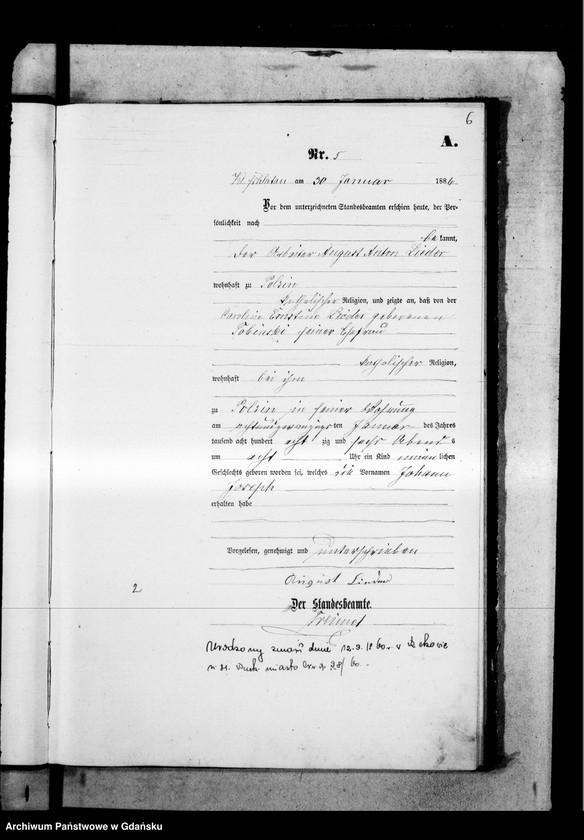 6
A.
Nr. 5
Kl. Schlatau am 30 Januar 1886.
Vor dem unterzeichneten Standesbeamten erschien heute, der Per-
sönlichkeit nach
be kannt,
der Arbeiter August Anton Lieder
wohnhaft zu Polzin
katholischer Religion, und zeigte an, daß von der
Caroline Ernstine Lieder geborenen
Tobinski seiner Ehefrau
katholischer Religion,
wohnhaft bei ihm
zu Polzin in seiner Wohnung
am achtundzwanzigsten Januar des Jahres
tausend acht hundert acht zig und sechs Abends
um acht Uhr ein Kind männlichen
Geschlechts geboren worden sei, welches die Vornamen Johann
Joseph
erhalten habe
Vorgelesen, genehmigt und unterschrieben
August Lieder
2
Der Standesbeamte.
Urodzony zmarł dnia 12.3.1960 r. w
miasto 98/60.
Archiwum Państwowe w Gdańsku